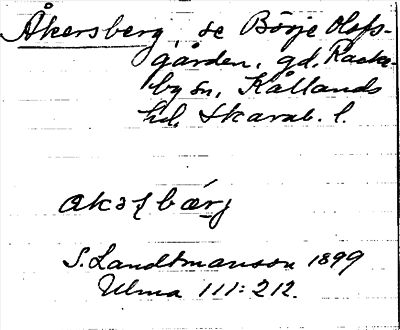 Åkersberg, se Börje Olofs-
gården, gd, Racka-
by sn, Kållands
hd. Skarab. l.
akəʃbærj
S. Landtmanson 1899
Ulma 111:212.